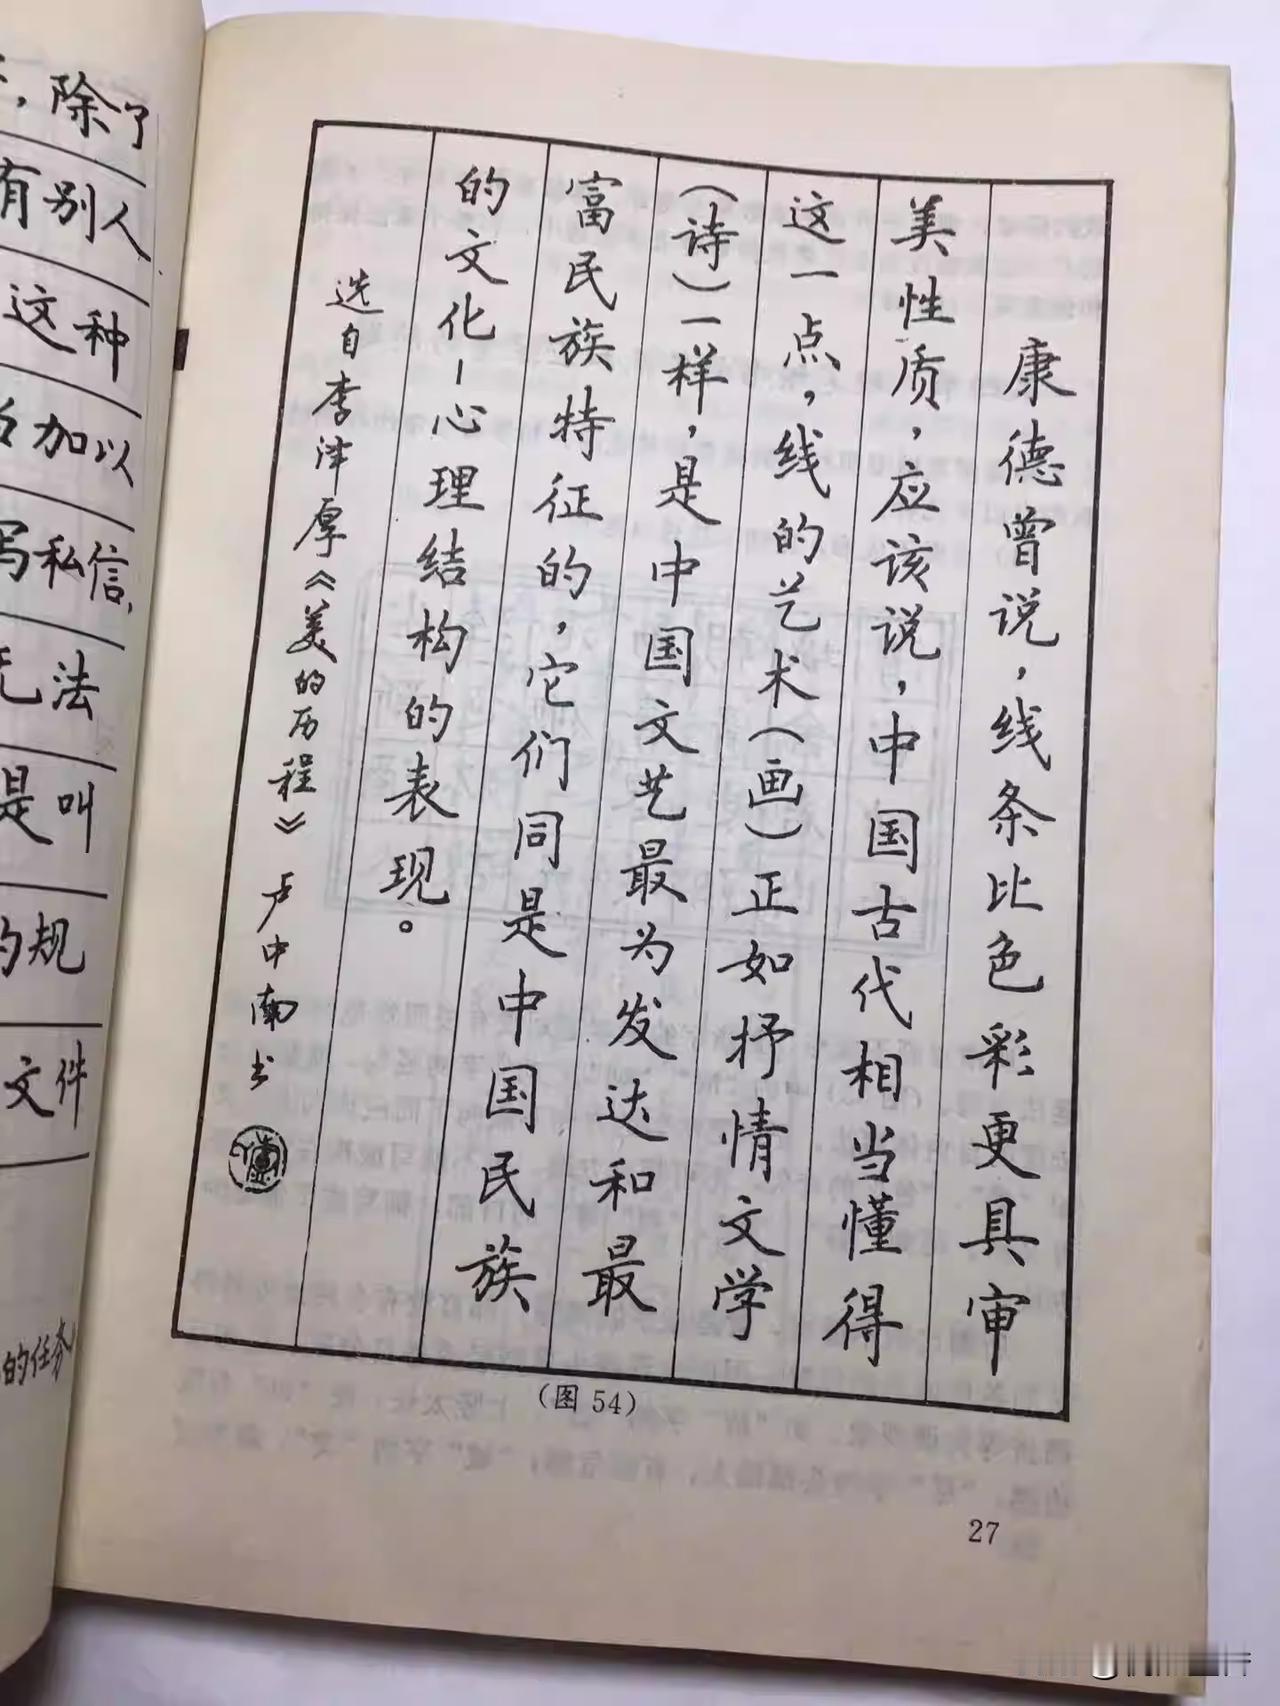 康德曾说，线条比色彩更具审
美性质，应该说，中国古代相当懂得
这一点，线的艺术（画）正如抒情文学
（诗）一样，是中国文艺最为发达和最
富民族特征的，它们同是中国民族
的文化-心理结构的表现。
选自李泽厚《美的历程》卢中南书
（图54）
27
，除了
有别人
这种
加以
写私信，
无法
是叫
的规
文件
的任务